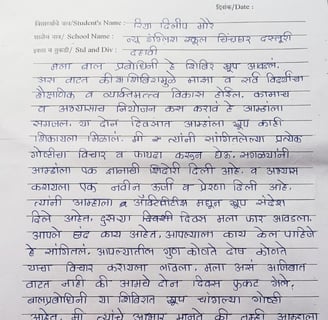 दिनांक/Date :
विद्यार्थ्याचे नाव/Student's Name : रिया दिलीप मोरे
शाळेचे नाव/ School Name : न्यू इंग्लिश स्कूल चिंचघर दस्तूरी
इयत्ता व तुकडी/ Std and Div : दहावी
मला बाल प्रबोधिनी हे शिबिर खूप आवडलं.
असं वाटतं की या शिबिरामुळे माझा व सर्व विद्यार्थ्यांचा
शैक्षणिक व व्यक्तिमत्त्व विकास होईल. कामाच
व अभ्यासाच नियोजन कस करावं हे आम्हांला
समजलं. या दोन दिवसात आम्हाला खूप काही
शिकायला मिळालं. मी त्यांनी सांगितलेल्या प्रत्येक
गोष्टीचा विचार व फायदा करून घेऊ. सगळ्यांनी
आम्हांला एक ज्ञानाची शिदोरी दिली आहे. व अभ्यास
करायला एक नवीन ऊर्जा व प्रेरणा दिली आहे.
त्यांनी आम्हाला अॅक्टिव्हीटीज मधून खूप संदेश
दिले आहेत. दुसरा दिवस मला फार आवडला.
आपले छंद काय आहेत, आपल्याला काय केलं पाहिजे
हे सांगितलं. आपल्यातील गुण कोणते दोष कोणते
याचा विचार करायला लावला. मला असं अजिबात
वाटत नाही की आमचे दोन दिवस फुकट गेले.
बालप्रबोधिनी या शिबिरात खूप चांगल्या गोष्टी
आहेत. मी त्यांचे आभार मानते की तुम्ही आम्हाला